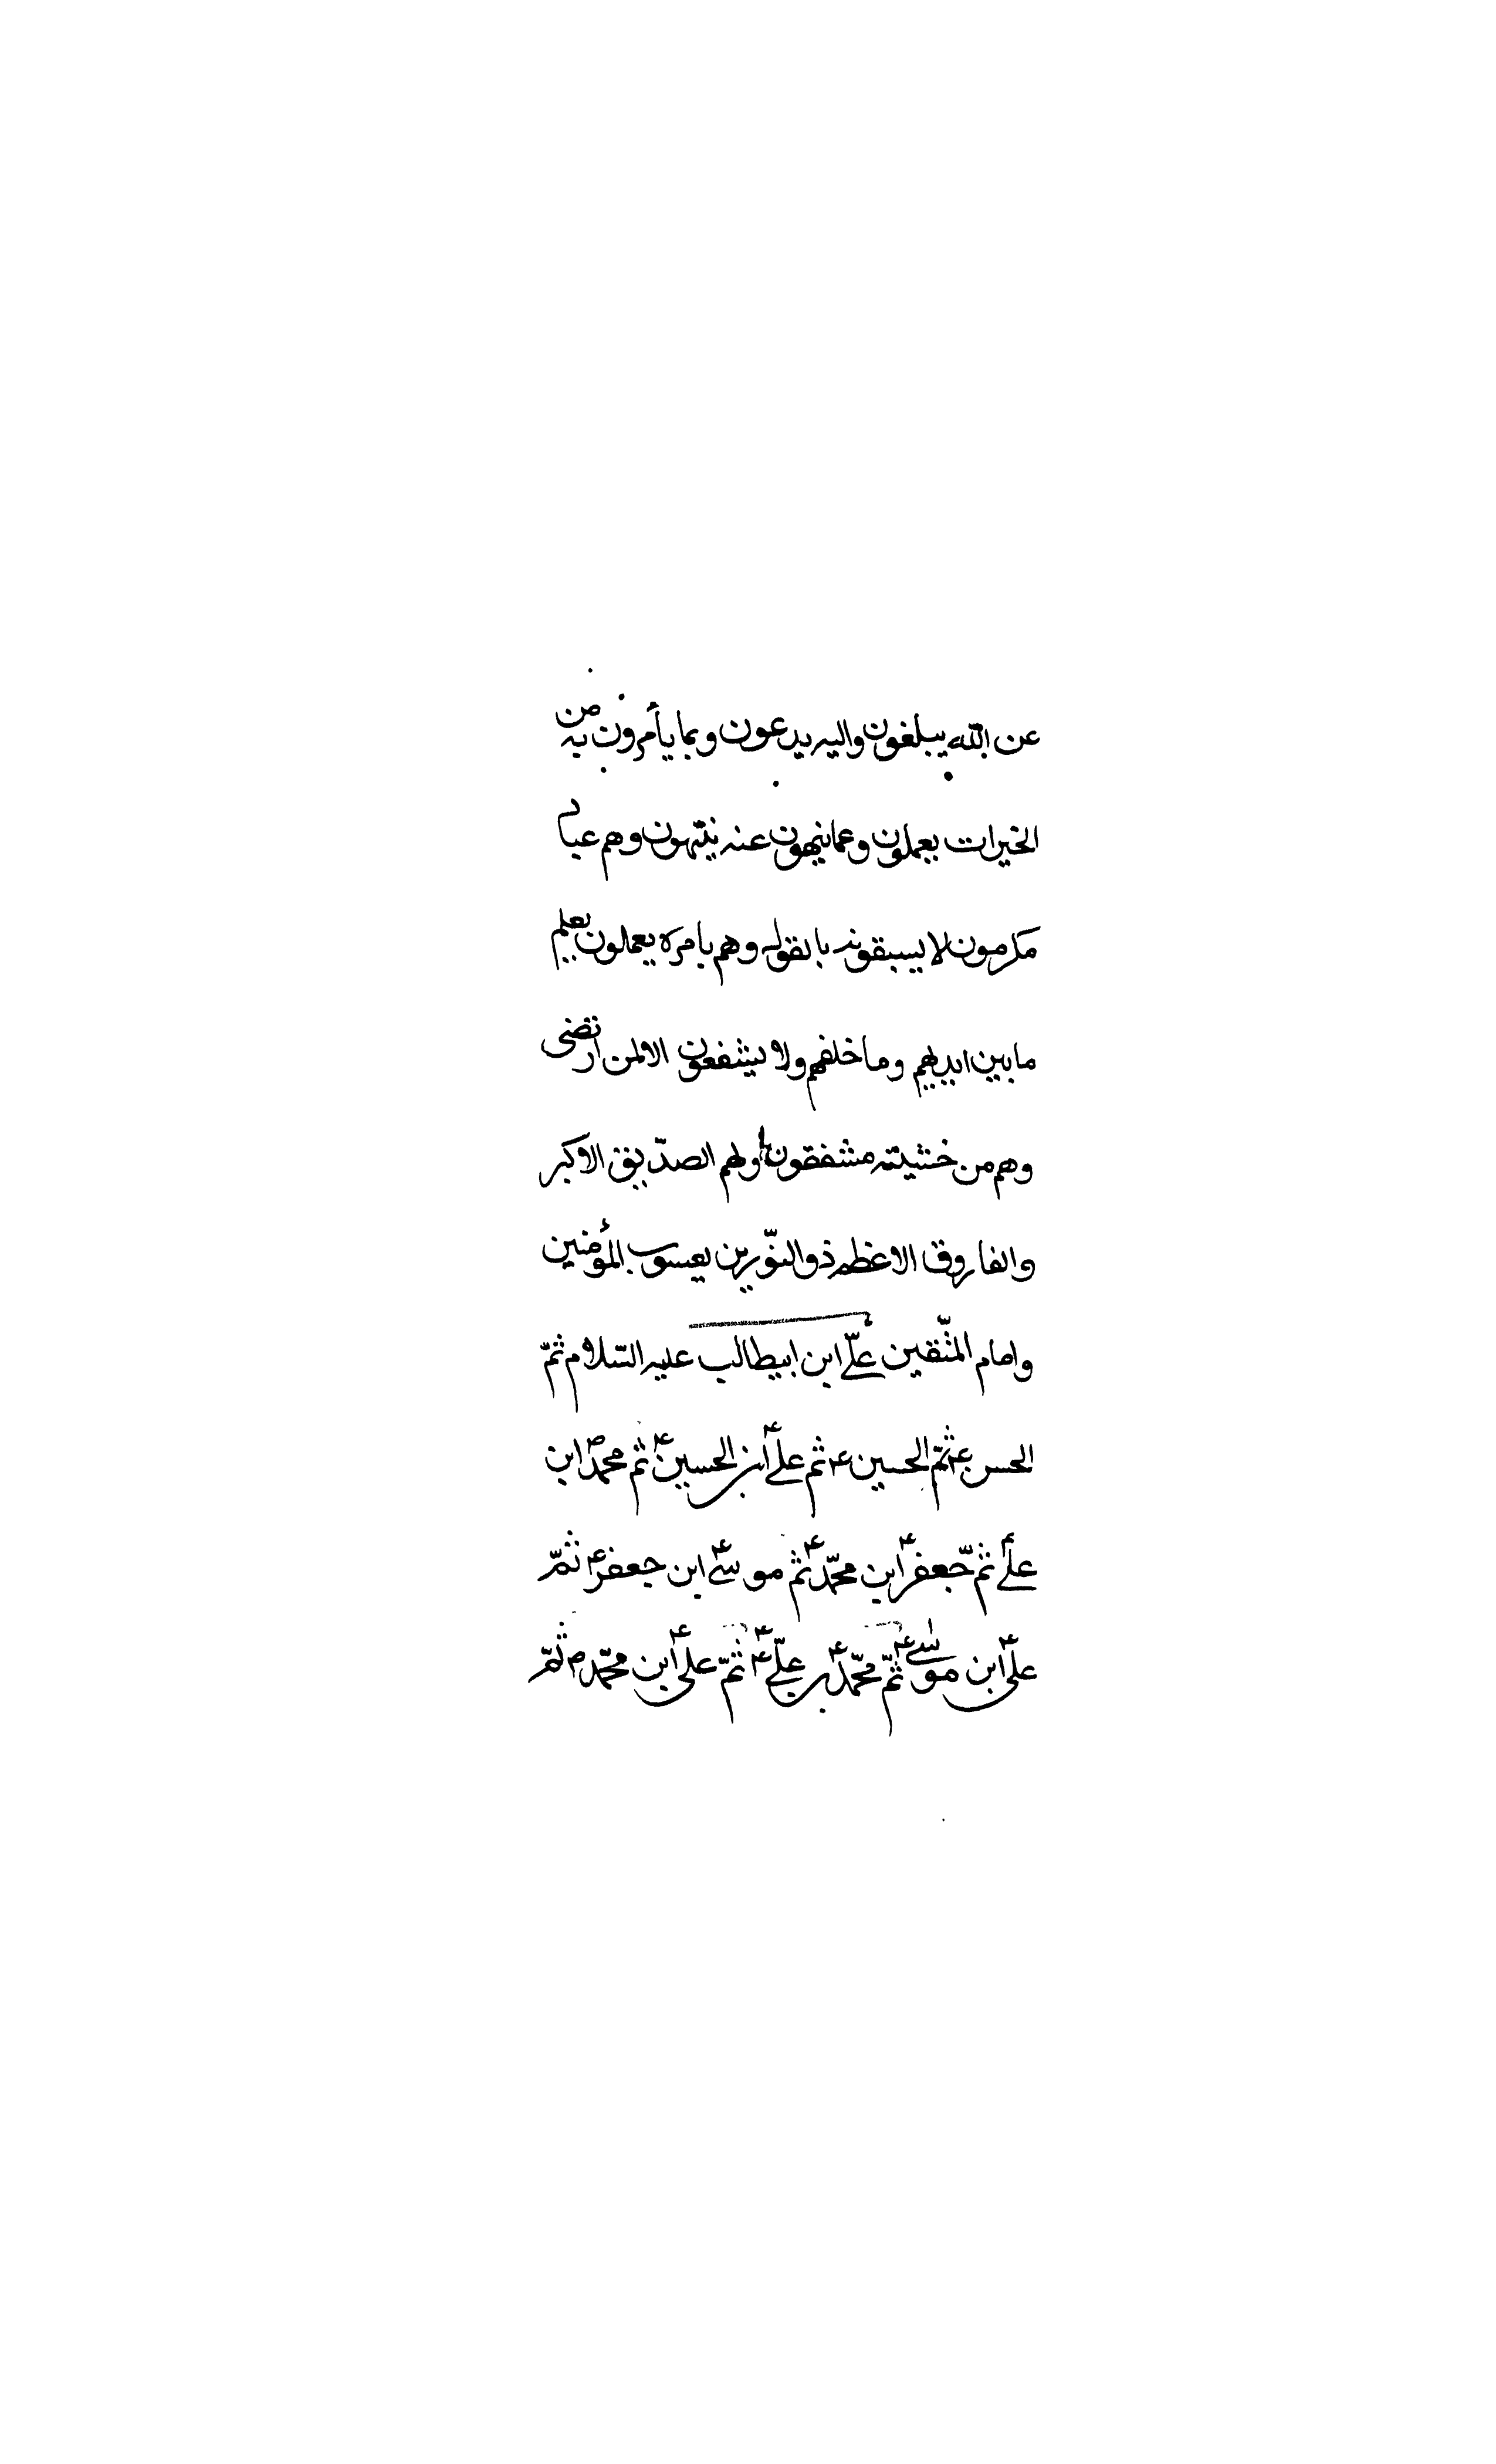 عن الله يبلغون واليه يدعون وبما يأمرون به من
الخيرات يعملون وعما ينهون عنه ينتهون وهم عباد
مكرمون لا يسبقونه بالقوله وهم بامره يعملون يعلم
ما بين ايديهم وما خلفهم ولا يشفعون الا لمن ارتضى
وهم من خشيته مشفقون اولهم الصدّيق الاكبر
والفاروق الاعظم ذو النّورين يعسوب المؤمنين
وامام المتّقين علىّ ابن ابيطالب عليه السّلام ثمّ
الحسن ع ثمّ الحسين ع ثم على ابن الحسين ع ثم محمّد ابن
على ع ثم جعفر ع ابن محمّد ع ثم موسى ع ابن جعفر ع ثمّ
على ع ابن موسى ع ثمّ محمّد ع بن علىّ ع ثمّ على ع ابن محمّد ع ثمّ